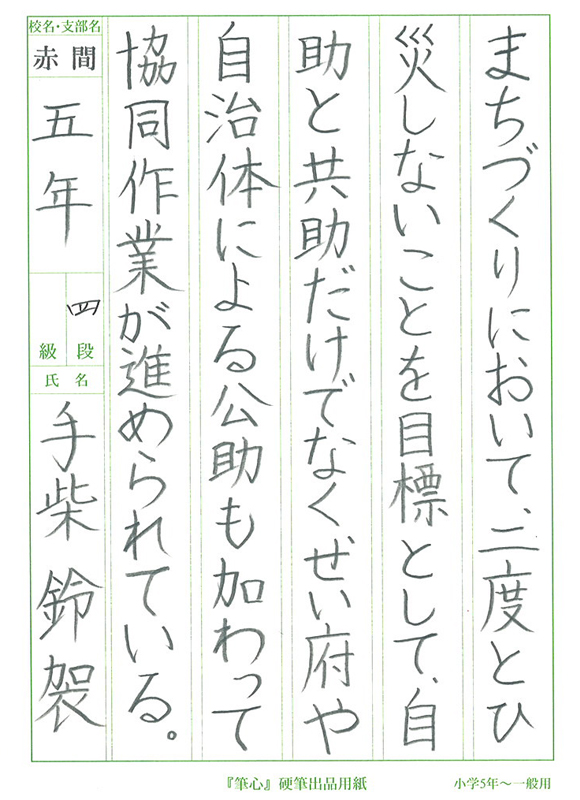 まちづくりにおいて、二度とひ
災しないことを目標として、自
助と共助だけでなくぜい府や
自治体による公助も加わって
協同作業が進められている。
校名・支部名
赤間
五年
四
段
級
氏名
手柴 鈴袈
『筆心』硬筆出品用紙
小学5年～一般用